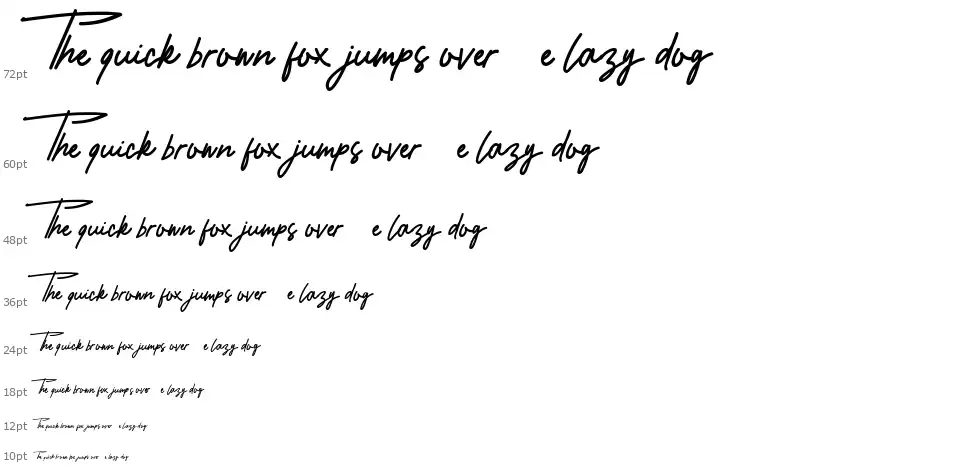 The quick brown fox jumps over e lazy dog
72pt
The quick brown fox jumps over e lazy dog
60pt
The quick brown fox jumps over e lazy dog
48pt
The quick brown fox jumps over e lazy dog
36pt
The quick brown fox jumps over e lazy dog
24pt
The quick brown fox jumps over e lazy dog
18pt
The quick brown fox jumps over e lazy dog
12pt
The quick brown fox jumps over e lazy dog
10pt